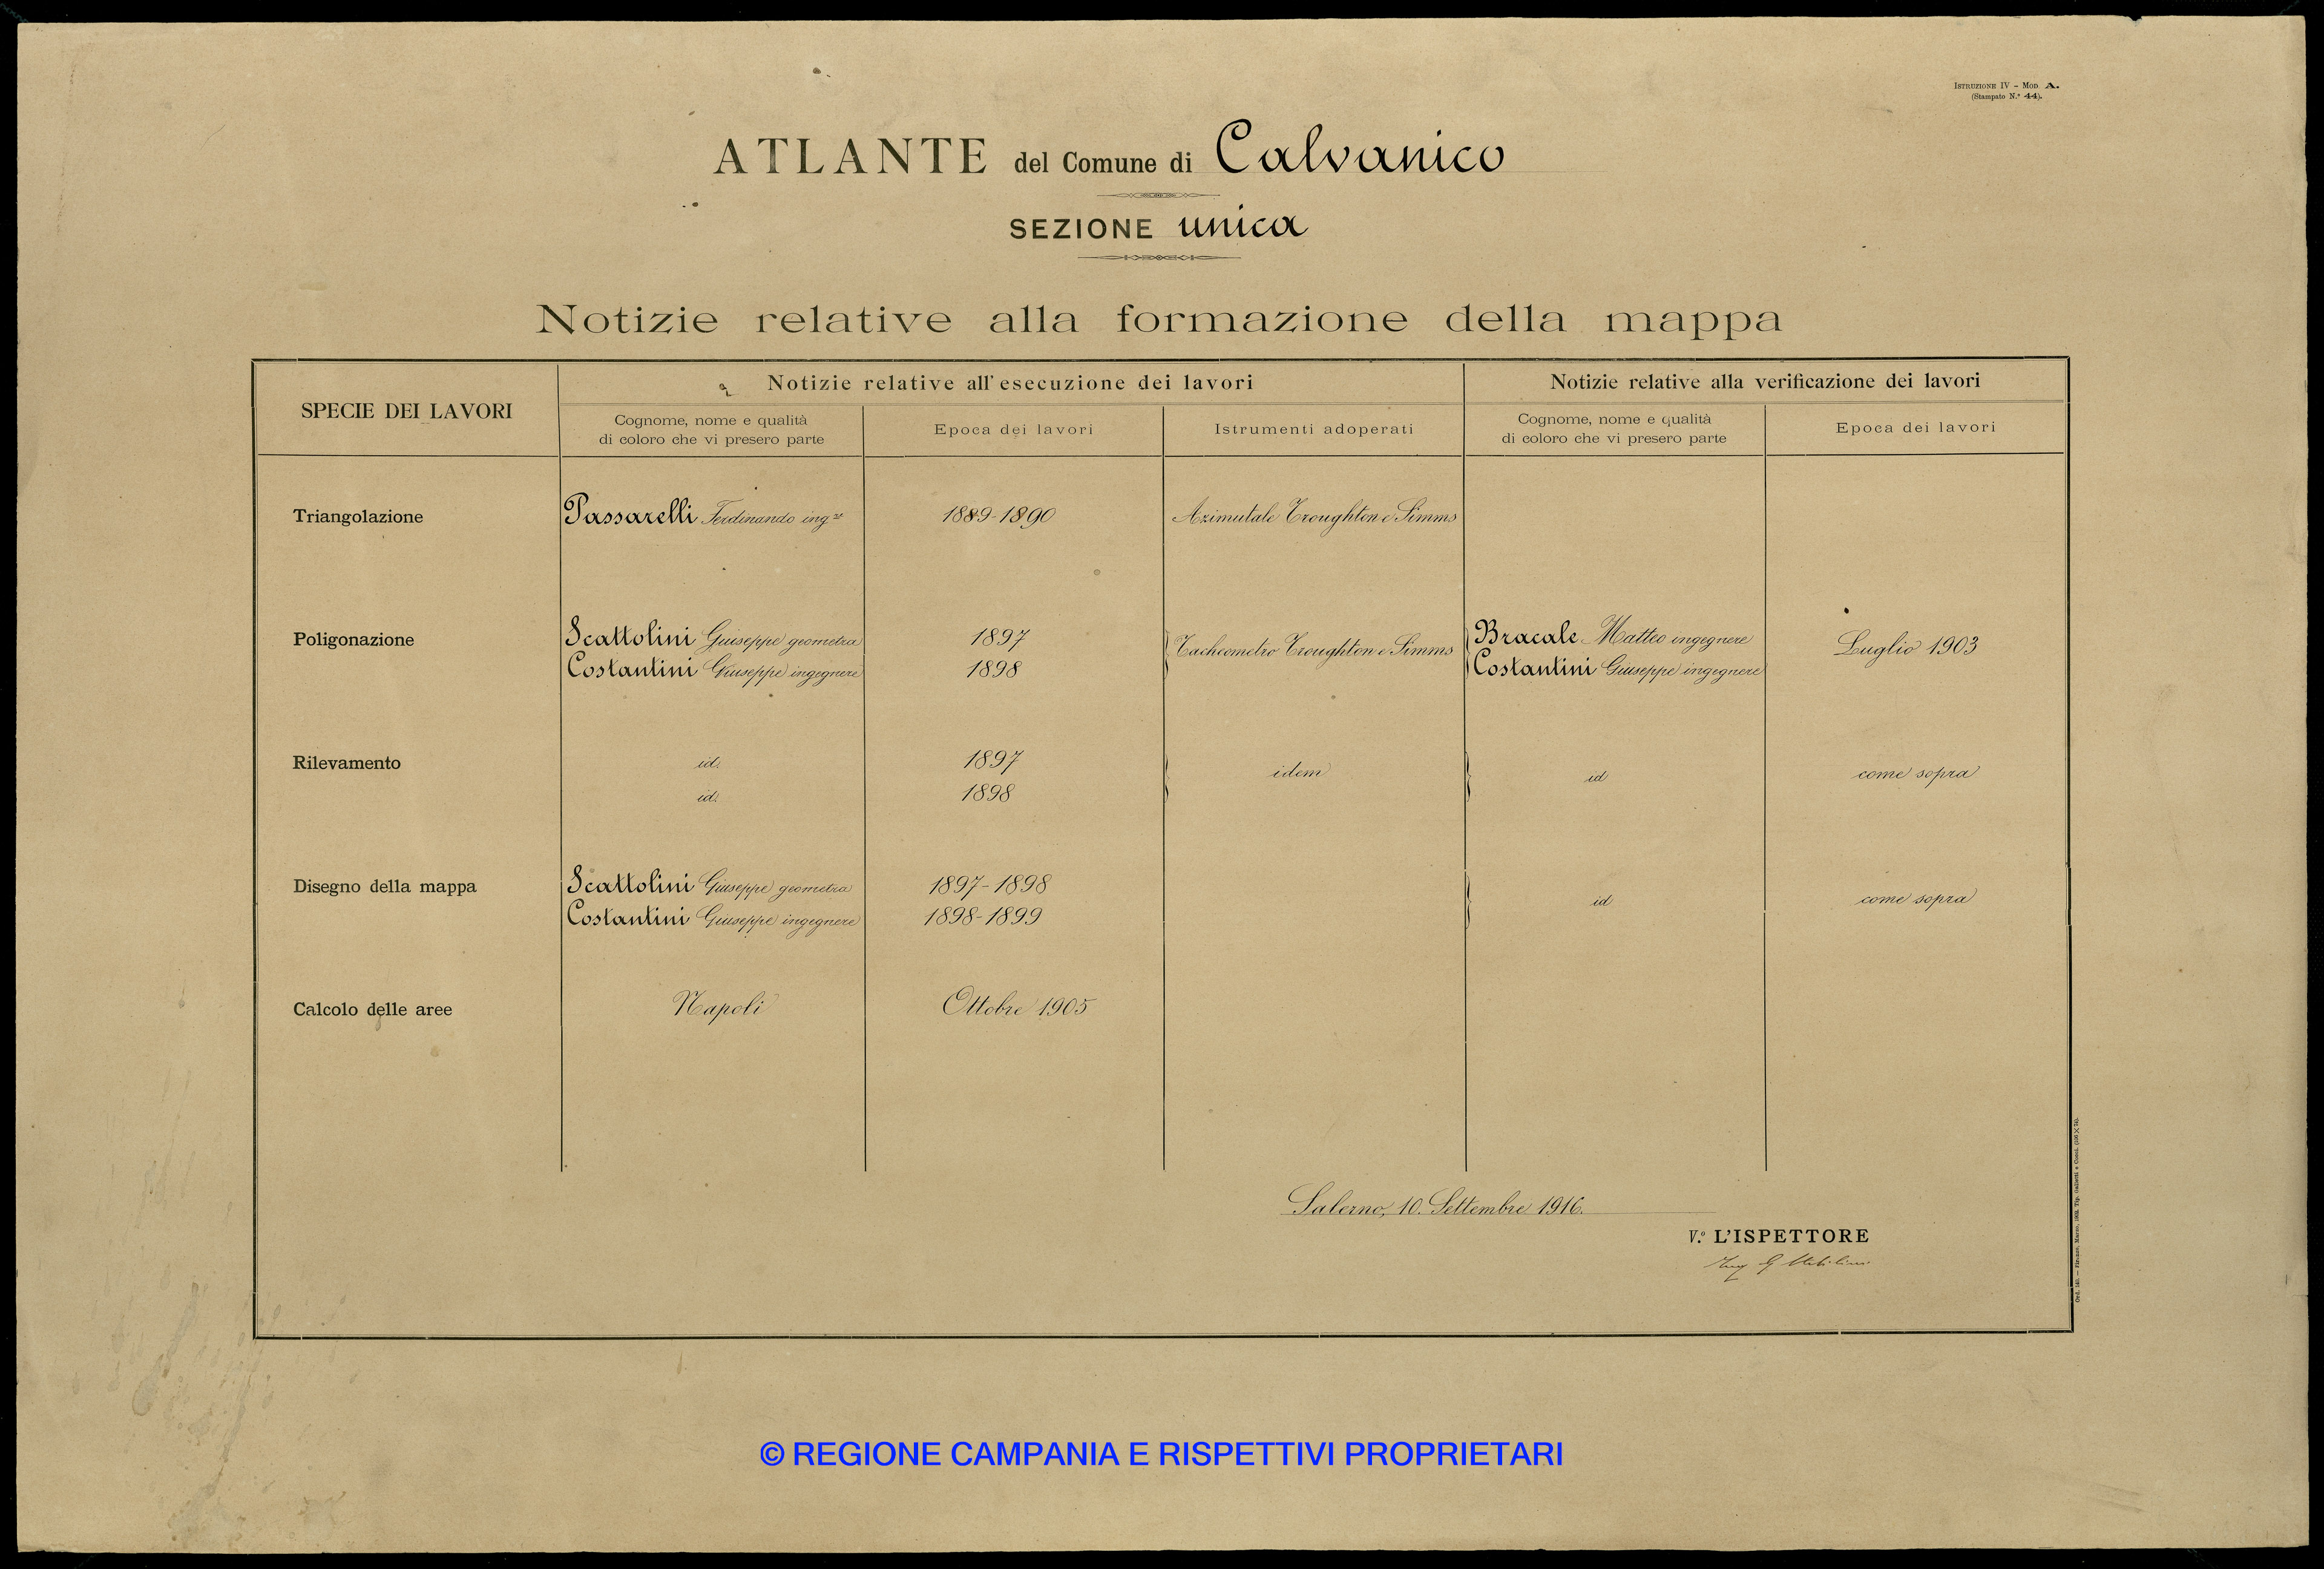 ISTRUZIONE IV - MOD. A.
(Stampato N.° 44).
ATLANTE del Comune di Calvanico
SEZIONE unica
Notizie relative alla formazione della mappa
SPECIE DEI LAVORI
Notizie relative all'esecuzione dei lavori
Notizie relative alla verificazione dei lavori
Cognome, nome e qualità
di coloro che vi presero parte
Epoca dei lavori
Istrumenti adoperati
Cognome, nome e qualità
di coloro che vi presero parte
Epoca dei lavori
Triangolazione
Passarelli Ferdinando ing.re
1889-1890
Azimutale Troughton e Simms
Poligonazione
Scattolini Giuseppe geometra
Costantini Giuseppe ingegnere
1897
1898
Tacheometro Troughton e Simms
Bracale Matteo ingegnere
Costantini Giuseppe ingegnere
Luglio 1903
Rilevamento
id.
id.
1897
1898
idem
id
come sopra
Disegno della mappa
Scattolini Giuseppe geometra
Costantini Giuseppe ingegnere
1897-1898
1898-1899
id
come sopra
Calcolo delle aree
Napoli
Ottobre 1905
Salerno, 10. Settembre 1916.
V.° L'ISPETTORE
Ing G
© REGIONE CAMPANIA E RISPETTIVI PROPRIETARI